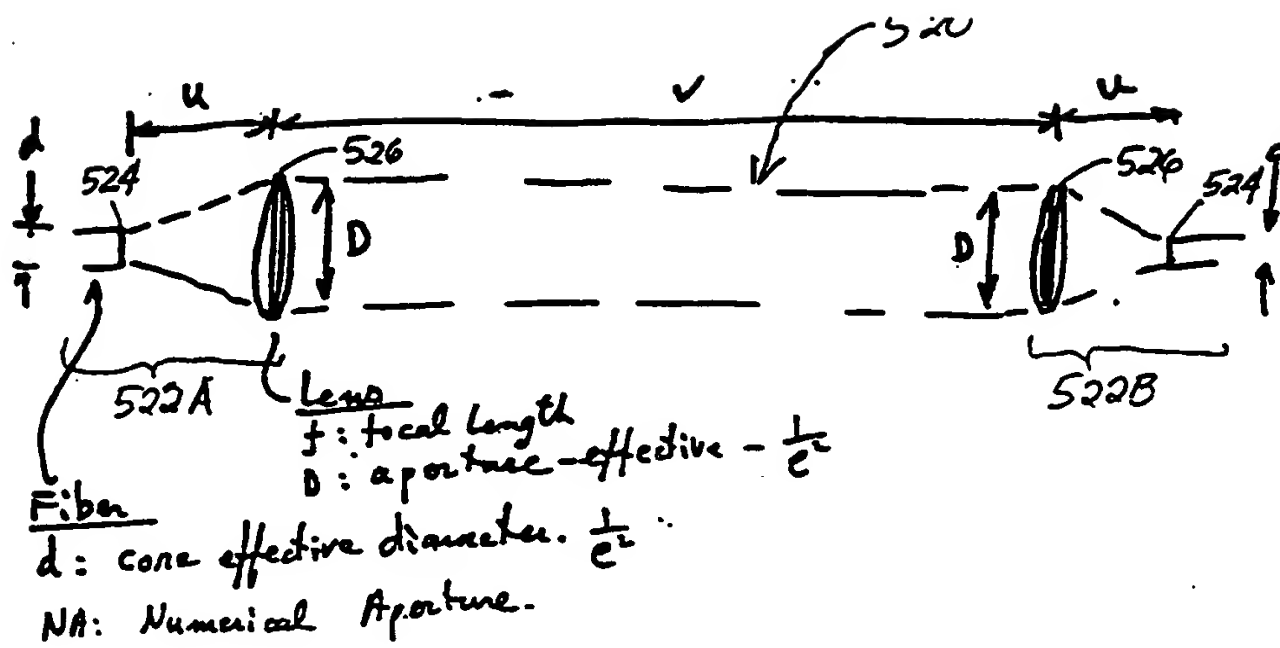 520
u v u
d
524
526
D
D
526
524
522A
522B
Lens
f: focal length
D: aperture-effective - 1/e²
Fiber
d: core effective diameter. 1/e²
NA: Numerical Aperture.